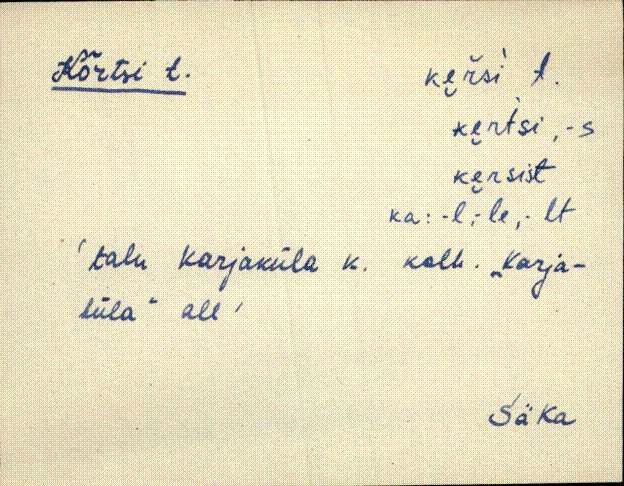 Kõrtsi t.
kęŕsi t.
kęŕtsi, -s
kęrsist
ka: -l, -le, -lt
'talu Karjaküla k. kolh. „Karja-
küla" all'
SäKa